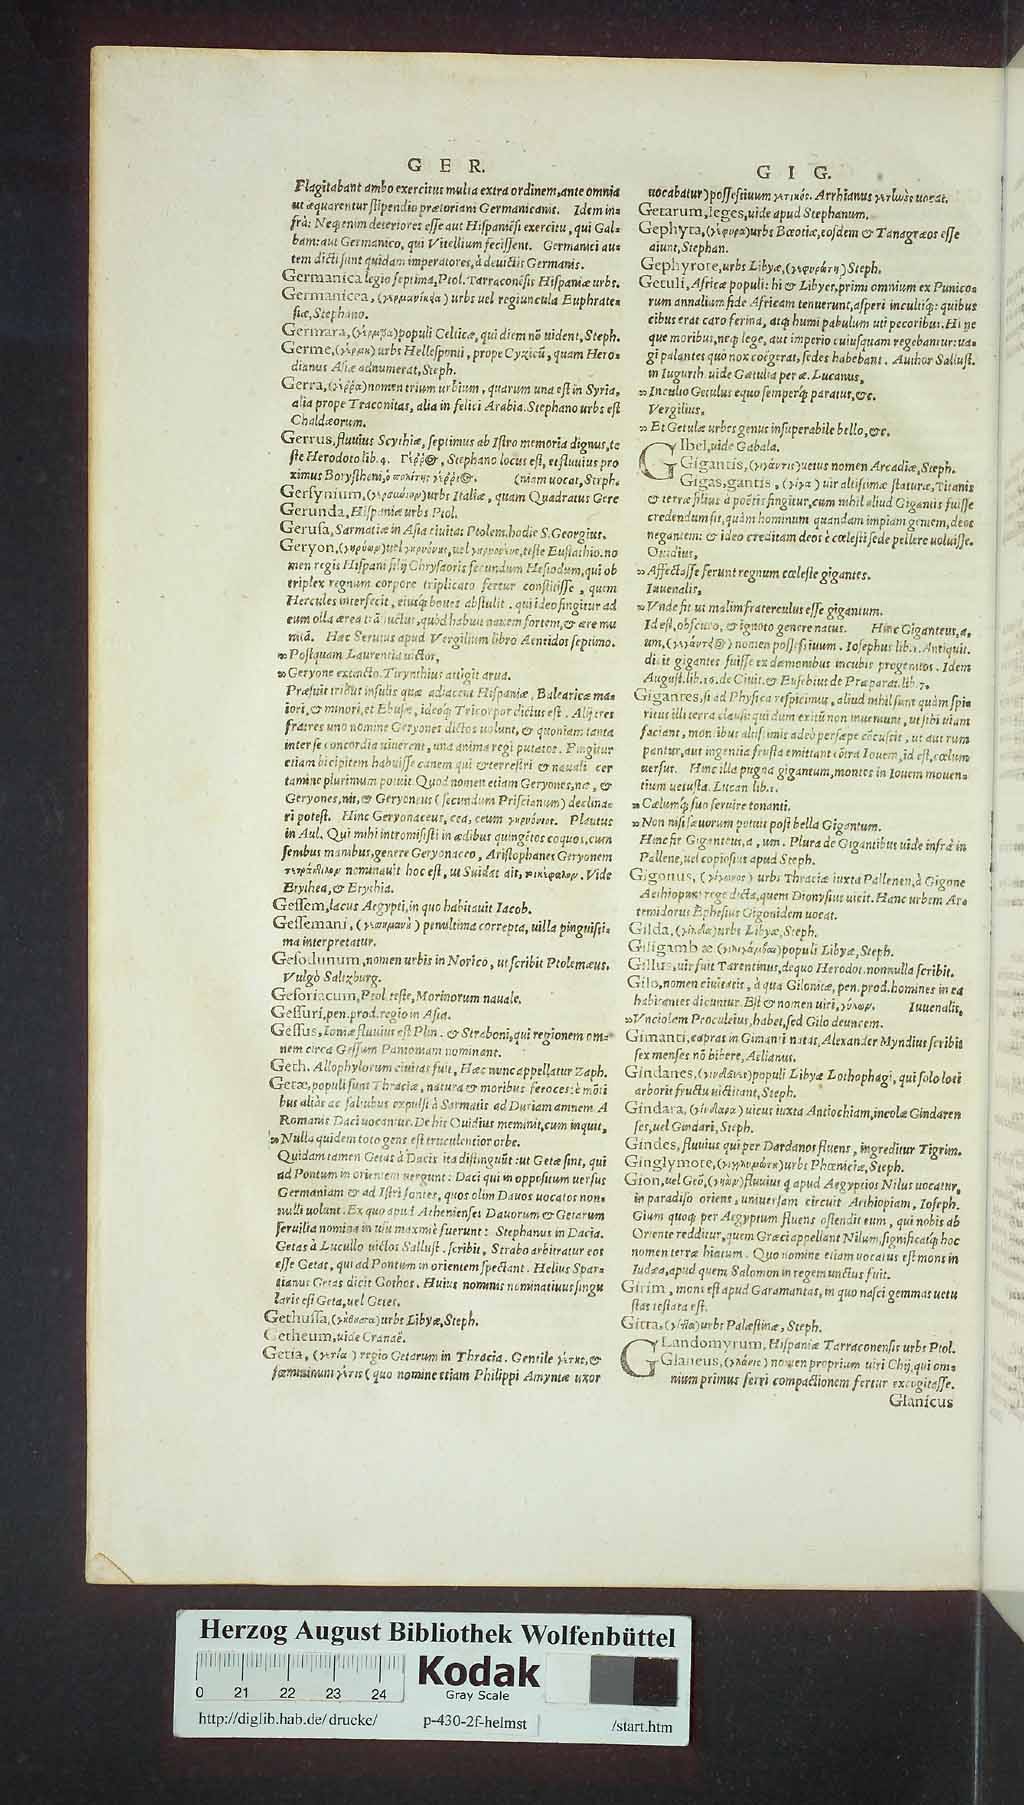 G E R.
Flagitabant ambo exercitus multa extra ordinem, ante omnia
ut æquarentur stipendio prætoriani Germanicanis. Idem in-
frà: Neq; enim deteriores esse aut Hispaniẽsi exercitu, qui Gal-
bam: aut Germanico, qui Vitellium fecissent. Germanici au-
tem dicti sunt quidam imperatores, à deuictis Germanis.
Germanica legio septima, Ptol. Tarraconẽsis Hispaniæ urbs.
Germanicea, (γερμανίκεια) urbs uel regiuncula Euphrate-
siæ, Stephano.
Germara, (γέρμαρα) populi Celticæ, qui diem nõ uident, Steph.
Germe, (γέρμη) urbs Hellesponti, prope Cyzicũ, quam Hero-
dianus Asiæ adnumerat, Steph.
Gerra, (γέρρα) nomen trium urbium, quarum una est in Syria,
alia prope Traconitas, alia in felici Arabia. Stephano urbs est
Chaldæorum.
Gerrus, fluuius Scythiæ, septimus ab Istro memoria dignus, te
ste Herodoto lib. 4. Γέρρος, Stephano locus est, et fluuius pro
ximus Borystheni, ὁ πολίτης γέρριος. (niam uocat, Strph.
Gersynium, urbs Italiæ, quam Quadratus Gere
Gerunda, Hispaniæ urbs Ptol.
Gerusa, Sarmatiæ in Asia ciuitas Ptolem. hodie S. Georgius.
Geryon, (γηρύων) uel γηρυόνης, uel teste Eustathio. no
men regis Hispani filij Chrysaoris secundum Hesiodum, qui ob
triplex regnum corpore triplicato fertur constitisse, quem
Hercules interfecit, eiusq́; boues abstulit. qui ideo fingitur ad
eum olla ærea trãsuectus, quòd habuit nauem fortem, & ære mu
nitã. Hæc Seruius apud Vergilium libro Aeneidos septimo.
” Postquam Laurentia uictor,
” Geryone extincto, Tirynthius attigit arua.
Præfuit tribus insulis quæ adiacent Hispaniæ, Balearicæ ma-
iori, & minori, et Ebusæ, ideoq́; Tricorpor dictus est. Alij tres
fratres uno nomine Geryones dictos uolunt, & quoniam tanta
inter se concordia uiuerent, una anima regi putatos. Fingitur
etiam bicipitem habuisse canem qui & terrestri & nauali cer
tamine plurimum potuit. Quod nomen etiam Geryones, næ, &
Geryones, nis, & Geryoneus (secundum Priscianum) declina-
ri potest. Hinc Geryonaceus, cea, ceum γηρυόνιος. Plautus
in Aul. Qui mihi intromisisti in ædibus quingẽtos coquos, cum
senibus manibus, genere Geryonaceo, Aristophanes Geryonem
nominauit hoc est, ut Suidas ait, Vide
Erythea, & Erythia.
Gessem, lacus Aegypti, in quo habitauit Iacob.
Gessemani, penultima correpta, uilla pinguissi-
ma interpretatur.
Gesodunum, nomen urbis in Norico, ut scribit Ptolemæus.
Vulgò Saltzburg.
Gesoriacum, Ptol. teste, Morinorum nauale.
Gessuri, pen. prod. regio in Asia.
Gessus, Ioniæ fluuius est Plin. & Straboni, qui regionem om-
nem circa Gessum Panioniam nominant.
Geth. Allophylorum ciuitas fuit, Hæc nunc appellatur Zaph.
Getæ, populi sunt Thraciæ, natura & moribus feroces: è mõti
bus aliàs ac saltibus expulsi à Sarmatis ad Durïam amnem. A
Romanis Daci uocantur. De his Ouidius meminit, cum inquit,
” Nulla quidem toto gens est truculentior orbe.
Quidam tamen Getas à Dacis ita distinguũt: ut Getæ sint, qui
ad Pontum in orientem uergunt: Daci qui in oppositum uersus
Germaniam & ad Istri fontes, quos olim Dauos uocatos non-
nulli uolunt. Ex quo apud Athenienses Dauorum & Getarum
seruilia nomina in usu maximè fuerunt: Stephanus in Dacia.
Getas à Lucullo uictos Sallust. scribit, Strabo arbitratur eos
esse Getas, qui ad Pontum in orientem spectant. Helius Spar-
tianus Getas dicit Gothos. Huius nominis nominatiuus singu
laris est Geta, uel Getes.
Gethussa, urbs Libyæ, Steph.
Getheum, uide Cranaë.
Getia, (γετία) regio Getarum in Thracia. Gentile γέτης, &
fœmininum γέτις (quo nomine etiam Philippi Amyntæ uxor
G I G.
uocabatur) possessiuum γετικός. Arrhianus uocat.
Getarum, leges, uide apud Stephanum.
Gephyra, (γέφυρα) urbs Bœotiæ, eosdem & Tanagræos esse
aiunt, Stephan.
Gephyrote, urbs Libyæ, (γεφυρώτη) Steph.
Getuli, Africæ populi: hi & Libyes, primi omnium ex Punico-
rum annalium fide Africam tenuerunt, asperi incultiq́;: quibus
cibus erat caro ferina, atq; humi pabulum uti pecoribus. Hi ne
que moribus, neq; lege, aut imperio cuiusquam regebantur: ua-
gi palantes quò nox coëgerat, sedes habebant. Author Sallust.
in Iugurth. uide Gætulia per æ. Lucanus,
” Inculto Getulus equo semperq́; paratus, &c.
Vergilius,
” Et Getulæ urbes genus insuperabile bello, &c.
GIbel, uide Gabala.
Gigantis, (γιγάντις) uetus nomen Arcadiæ, Steph.
Gigas, gantis, (γίγας) uir altissimæ staturæ, Titanis
& terræ filius à poëtis fingitur, cum nihil aliud Gigantis fuisse
credendum sit, quàm hominum quandam impiam gentem, deos
negantem: & ideo creditam deos è cœlesti sede pellere uoluisse.
Ouidius,
” Affectasse ferunt regnum cœleste gigantes.
Iuuenalis,
” Vnde fit ut malim fraterculus esse gigantum.
Id est, obscuro, & ignoto genere natus. Hinc Giganteus, a,
um, nomen possessiuum. Iosephus lib. 1. Antiquit.
dicit gigantes fuisse ex dæmonibus incubis progenitos. Idem
August. lib. 16. de Ciuit. & Eusebius de Præparat. lib. 7.
Gigantes, si ad Physica respicimus, aliud nihil sunt quàm spi-
ritus illi terra clausi: qui dum exitũ non inueniunt, ut sibi uiam
faciant, montibus altissimis adeò persæpe cõcussis, ut aut rum
pantur, aut ingentia frusta emittant cõtra Iouem, id est, cœlum
uersus. Hinc illa pugna gigantum, montes in Iouem mouen-
tium uetusta. Lucan. lib. 1.
” Cælumq́; suo seruire tonanti.
” Non nisi sæuorum potuit post bella Gigantum.
Hinc fit Giganteus, a, um. Plura de Gigantibus uide infrà in
Pallene, uel copiosius apud Steph.
Gigonus, (γίγωνος) urbs Thraciæ iuxta Pallenen, à Gigone
Aethiopum rege dicta, quem Dionysius uicit. Hanc urbem Ar-
temidorus Ephesius Gigonidem uocat.
Gilda, (γίλδα) urbs Libyæ, Steph.
Giligambæ (γιλιγάμβαι) populi Libyæ, Steph.
Gillus, uir fuit Tarentinus, de quo Herodot. nonnulla scribit.
Gilo, nomen ciuitatis, à qua Gilonitæ, pen. prod. homines in ea
habitantes dicuntur. Est & nomen uiri, γίλων. Iuuenalis,
” Vnciolam Proculeius, habet, sed Gilo deuncem.
Gimanti, capras in Gimanti natas, Alexander Myndius scribit
sex menses nõ bibere, Aelianus.
Gindanes, (γινδᾶνες) populi Libyæ Lothophagi, qui solo loti
arboris fructu uictitant, Steph.
Gindara, (γίνδαρα) uicus iuxta Antiochiam, incolæ Gindaren
ses, uel Gindari, Steph.
Gindes, fluuius qui per Dardanos fluens, ingreditur Tigrim.
Ginglymote, (γιγγλυμώτη) urbs Phœniciæ, Steph.
Gion, uel Geõ, (γηὼν) fluuius q apud Aegyptios Nilus uocatur,
in paradiso oriens, uniuersam circuit Aethiopiam, Ioseph.
Gium quoq; per Aegyptum fluens ostendit eum, qui nobis ab
Oriente redditur, quem Græci appellant Nilum, significatq́; hoc
nomen terræ hiatum. Quo nomine etiam uocatus est mons in
Iudæa, apud quem Salomon in regem unctus fuit.
Girim, mons est apud Garamantas, in quo nasci gemmas uetu
stas testata est.
Gitta, (γίττα) urbs Palæstinæ, Steph.
GLandomyrum, Hispaniæ Tarraconensis urbs Ptol.
Glaneus, (γλάνις) nomen proprium uiri Chij, qui om-
nium primus ferri compactionem fertur excogitasse.
Glanicus
Herzog August Bibliothek Wolfenbüttel
Kodak
Gray Scale
0 21 22 23 24
http://diglib.hab.de/drucke/ p-430-2f-helmst /start.htm